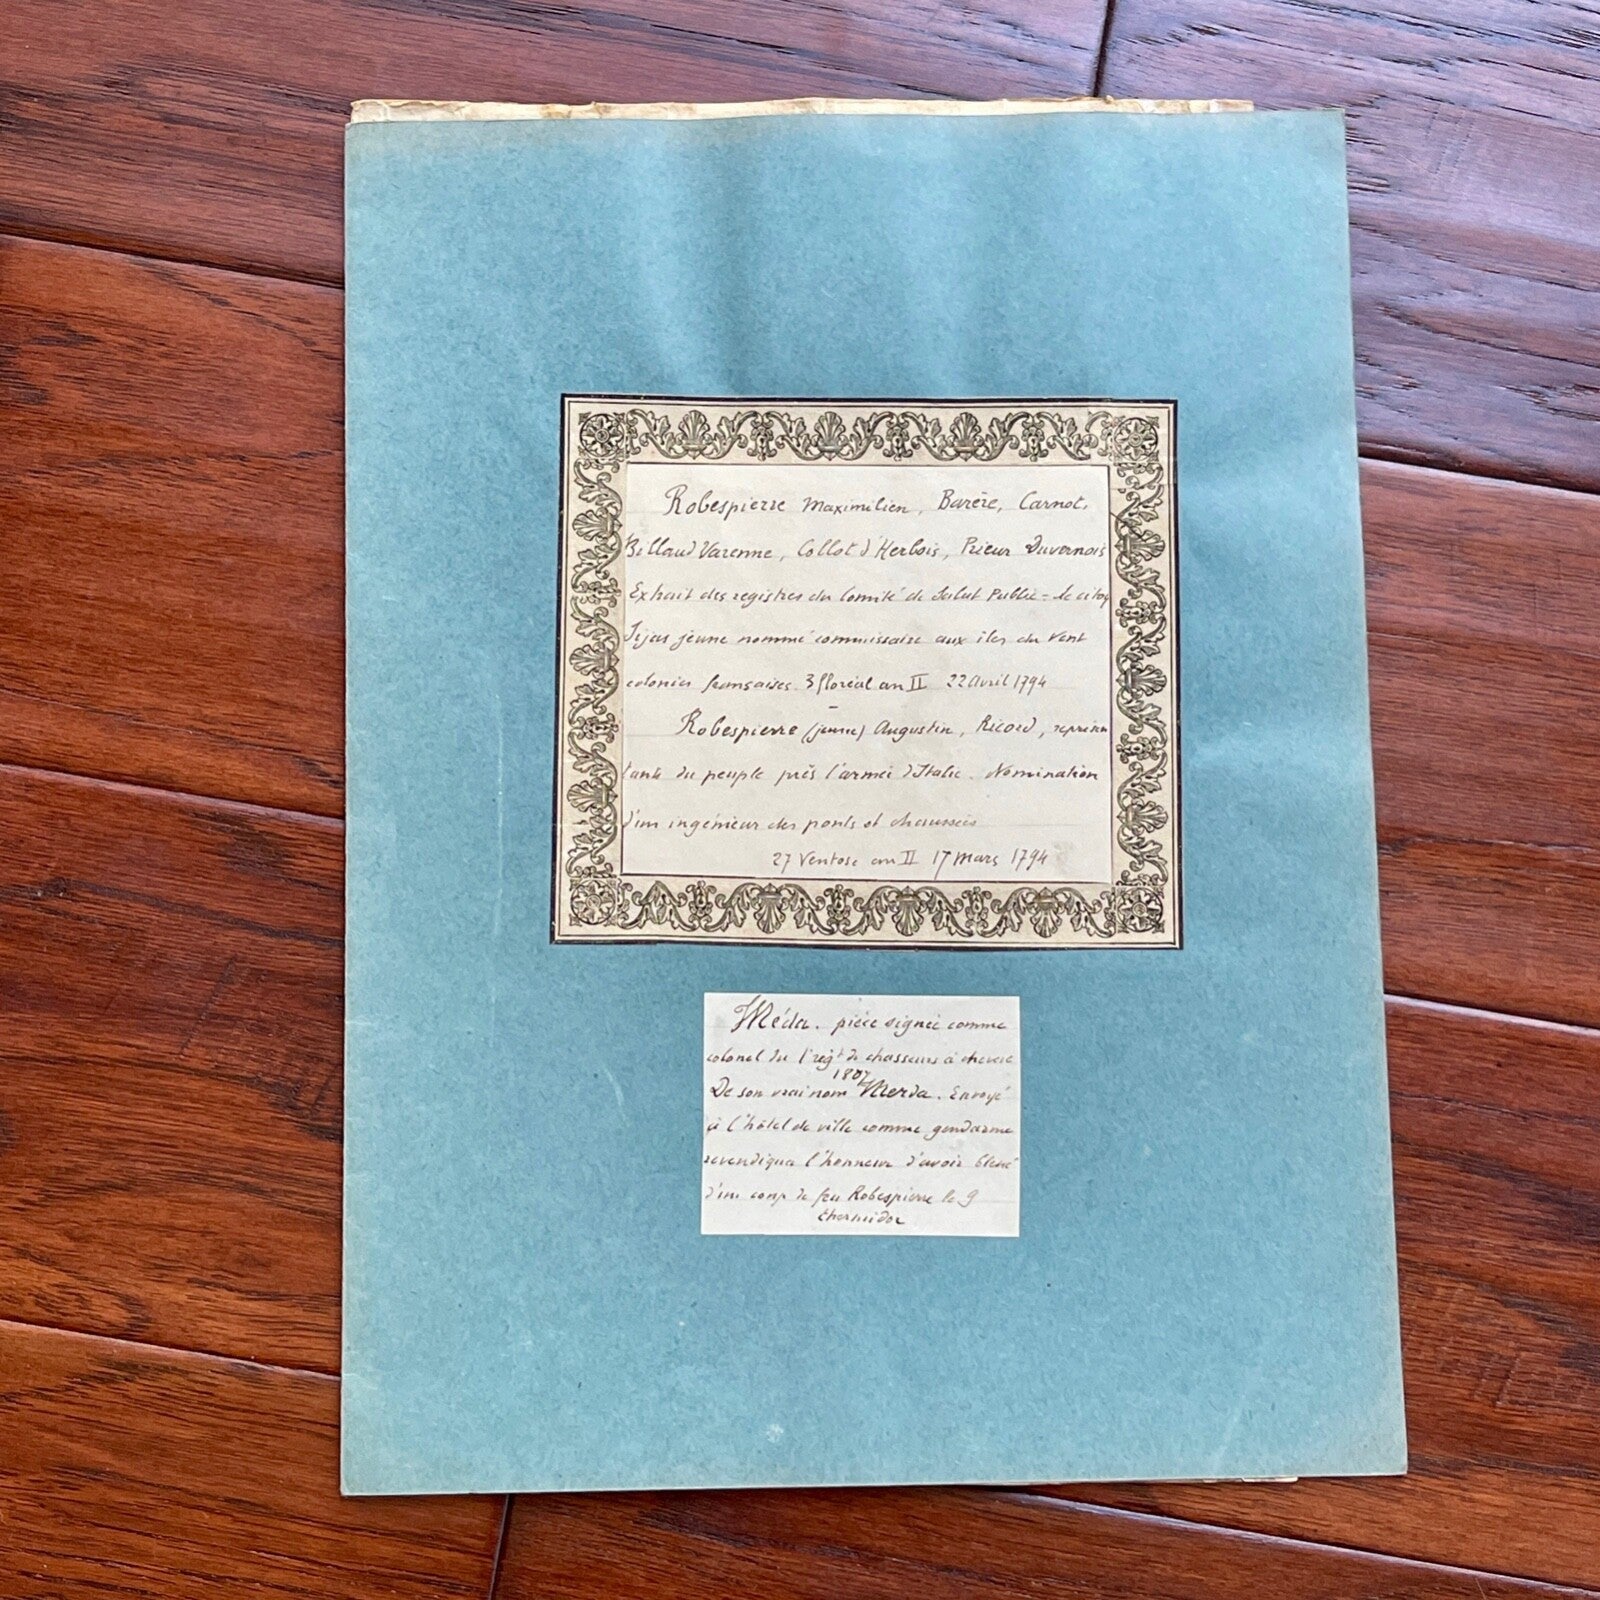 Robespierre Maximilien, Barère, Carnot,
Billaud Varenne, Collot d'Herbois, Prieur Duvernois
Extrait des registres du Comité de Salut Public = le citoy
jeune nommé commissaire aux îles du Vent
colonies françaises 3 floréal an II 22 avril 1794
Robespierre (jeune) Augustin, Ricord, représen
tants du peuple près l'armée d'Italie. Nomination
d'un ingénieur des ponts et chaussées
27 Ventose an II 17 mars 1794
Méda. pièce signée comme
colonel du 1 régt de chasseurs à cheval
1807
De son vrai nom Merda. Envoyé
à l'hôtel de ville comme gendarme
revendiqua l'honneur d'avoir blessé
d'un coup de feu Robespierre le 9
thermidor